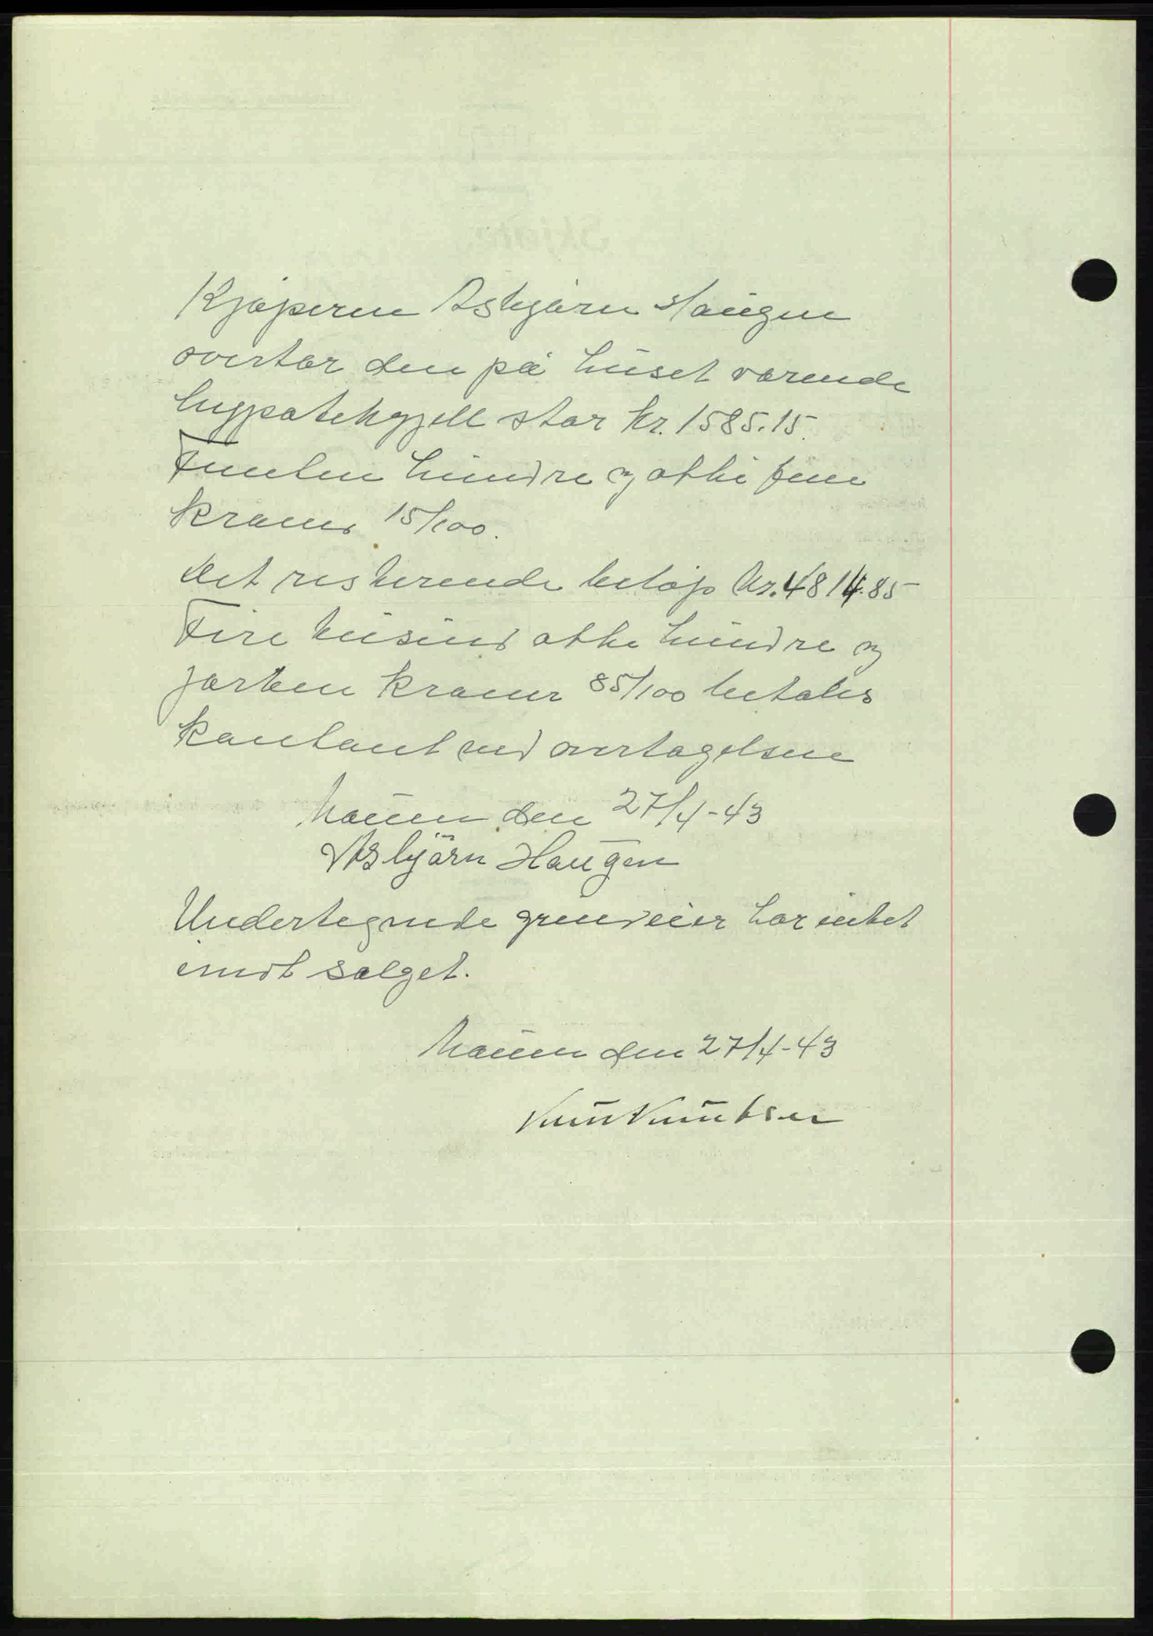 Kjøperen Asbjørn Haugen
overtar den på huset værende
hypotekgjell stor kr. 1585.15.
Femten hundre og otti fem
kroner 15/100.
Det resterende beløp kr. 4814.85
Fire tusind otte hundre og
fjorten kroner 85/100 betales
kontant ved overtagelsen
den 27/4-43
Asbjörn Haugen
Undertegnede grundeier har intet
imot salget.
den 27/4-43
Knut Knutsen